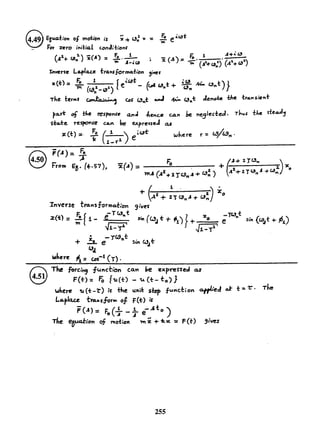 4.49 Equation of motion is ẍ + ωₙ² x = F₀/m e^{iωt}
For zero initial conditions
(s² + ωₙ²) x̄(s) = F₀/m · 1/(s-iω) ; x̄(s) = F₀/m · 1/(s²+ωₙ²) · (s+iω)/(s²+ω²)
Inverse Laplace transformation gives
x(t) = F₀/m · 1/(ωₙ²-ω²) { e^{iωt} - (cos ωₙt + iω/ωₙ sin ωₙt) }
The terms containing cos ωₙt and sin ωₙt denote the transient
part of the response and hence can be neglected. Thus the steady
state response can be expressed as
x(t) = F₀/k (1/(1-r²)) e^{iωt} where r = ω/ωₙ.
4.50 F̄(s) = F₀/s
From Eq. (4.57), x̄(s) = F₀/(ms(s²+2ζωₙs+ωₙ²)) + ((s+2ζωₙ)/(s²+2ζωₙs+ωₙ²)) x₀
+ (1/(s²+2ζωₙs+ωₙ²)) ẋ₀
Inverse transformation gives
+ ẋ₀/ω_d e^{-ζωₙt} sin ω_d t
where φ₁ = cos⁻¹(ζ).
4.51 The forcing function can be expressed as
F(t) = F₀ {u(t) - u(t-t₀)}
where u(t-τ) is the unit step function applied at t=τ. The
Laplace transform of F(t) is
F̄(s) = F₀ (1/s - 1/s e^{-st₀})
The equation of motion mẍ + kx = F(t) gives
255